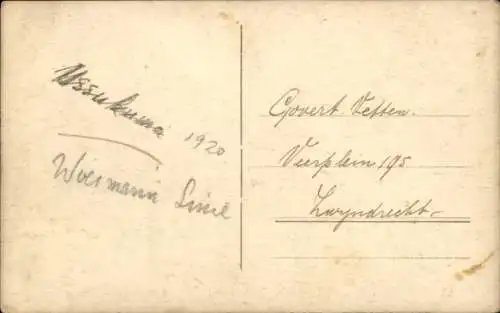 Ussukuma 1920
Woermann Linie
Govert Vetten.
Veerplein 195
Zwyndrecht